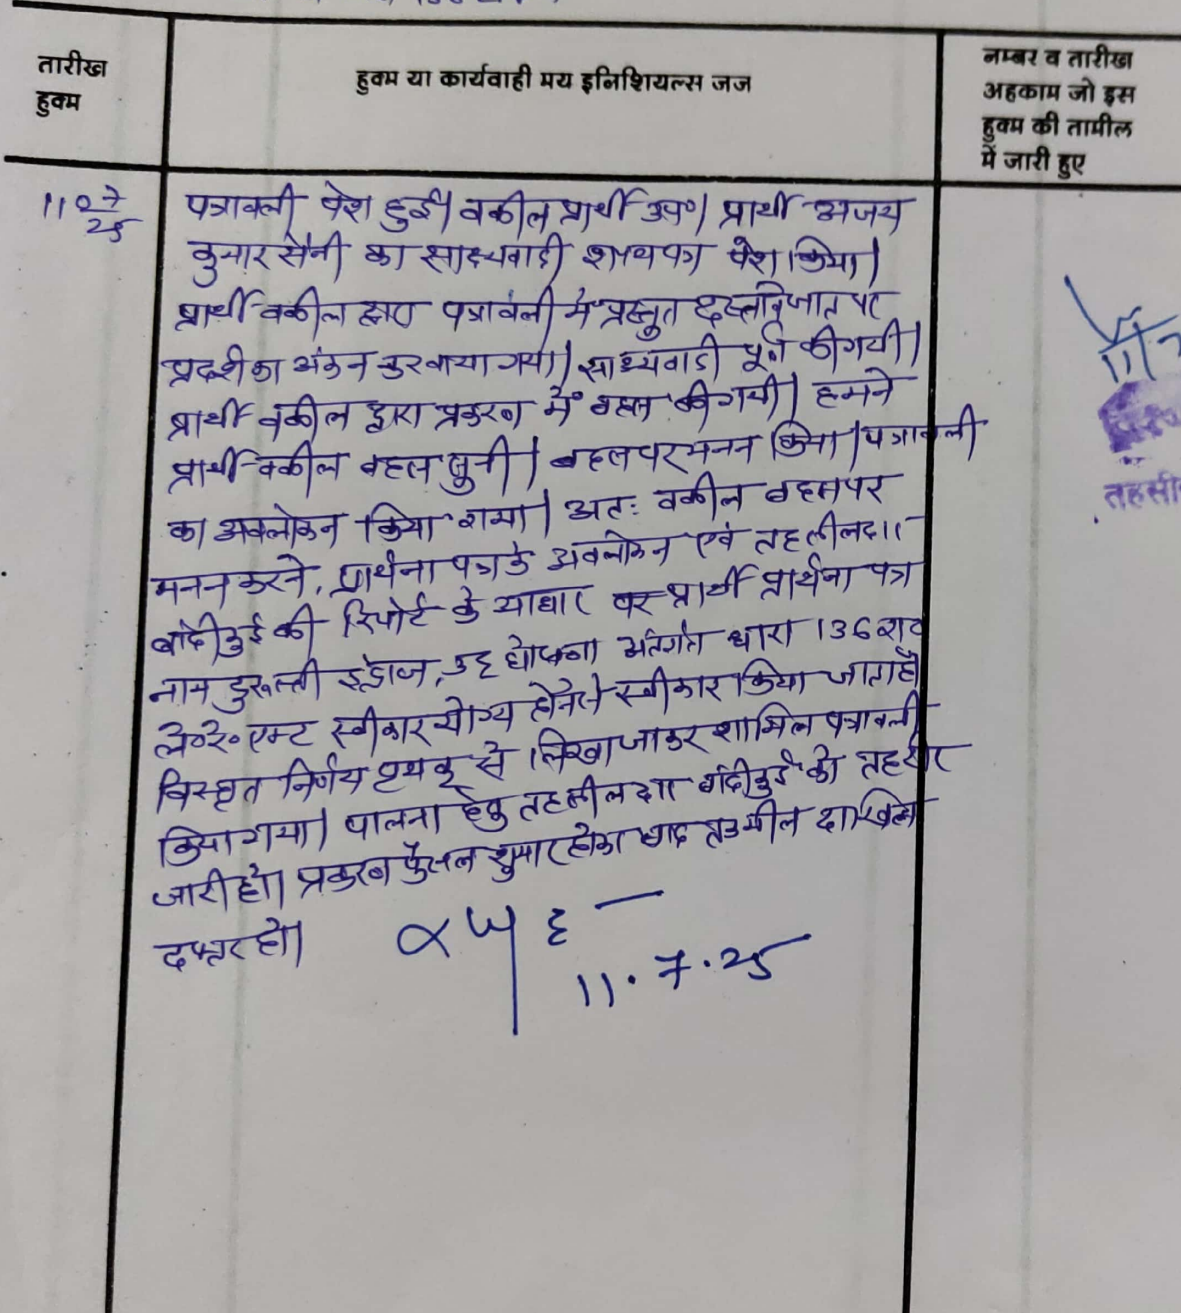 तारीख
हुक्म
हुक्म या कार्यवाही मय इनिशियल्स जज
नम्बर व तारीख
अहकाम जो इस
हुक्म की तामील
में जारी हुए
11 07/25
पत्रावली पेश हुई। वकील प्रार्थी उप०। प्रार्थी अजय
कुमार सैनी का साक्ष्यवादी शपथपत्र पेश किया।
प्रार्थी वकील द्वारा पत्रावली में प्रस्तुत दस्तावेजात पर
प्रदर्श का अंकन करवाया गया। साक्ष्यवादी पूर्ण की गयी।
प्रार्थी वकील द्वारा प्रकरण में बहस की गयी। हमने
प्रार्थी वकील बहस सुनी। बहस पर मनन किया। पत्रावली
का अवलोकन किया गया। अतः वकील बहस पर
मनन करने, प्रार्थना पत्र के अवलोकन एवं तहसीलदार
बांदीकुई की रिपोर्ट के आधार पर प्रार्थी प्रार्थना पत्र
नाम दुरूस्ती इन्द्राज, उद्घोषणा अंतर्गत धारा 136 राज०
ले०रे० एक्ट स्वीकार योग्य होने से स्वीकार किया जाता है।
विस्तृत निर्णय पृथक् से लिखा जाकर शामिल पत्रावली
किया गया। पालना हेतु तहसीलदार बांदीकुई को तहरीर
जारी हो। प्रकरण फैसल शुमार होकर बाद तकमील दाखिल
दफ्तर हो।
11.7.25
तहसी